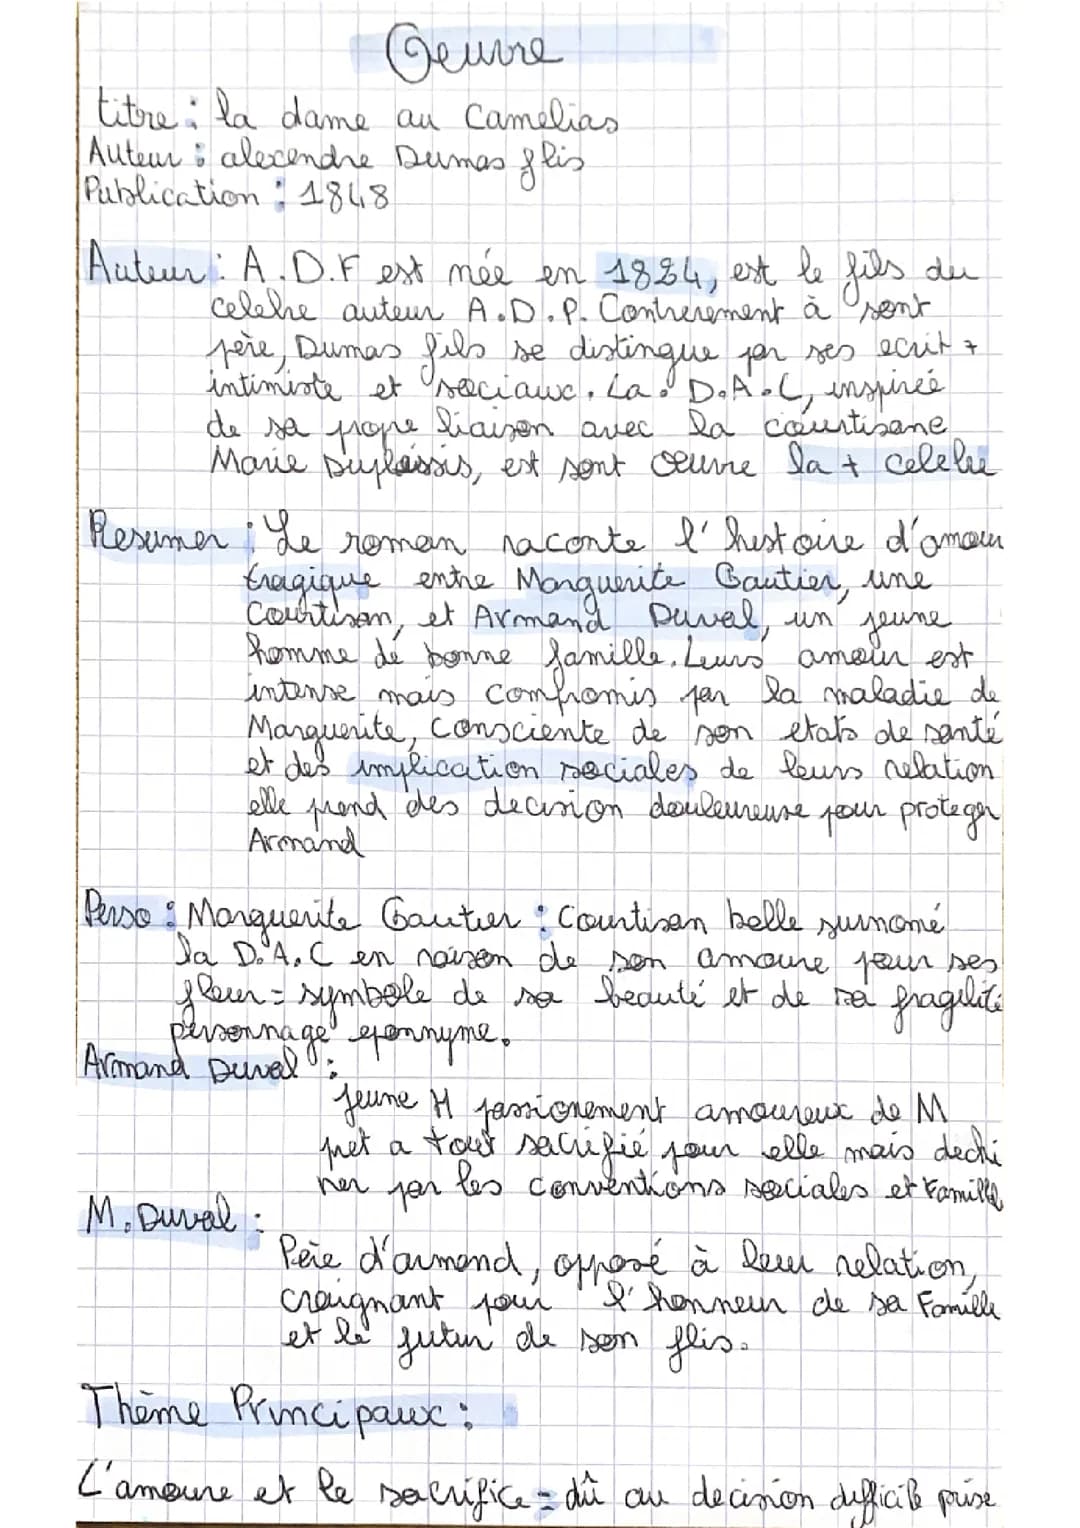 Oeuvre
titre : la dame au Camelias
Auteur : alexendre Dumas flis
Publication : 1848
Auteur : A.D.F est née en 1824, est le fils du
celebre auteur A.D.P. Contrerement à sont
père, Dumas fils se distingue par ses ecrit +
intimiste et sociaux. La D.A.C, inspirée
de sa propre liaison avec la courtisane
Marie Duplessis, est sont oeuvre la + celebre
Resumer : Le roman raconte l'histoire d'amour
tragique entre Marguerite Gautier, une
Courtisan, et Armand Duval, un jeune
homme de bonne famille. Leurs amour est
intense mais compromis par la maladie de
Marguerite, Consciente de son etats de santé
et des implication sociales de leurs relation
elle prend des decision douleureuse pour proteger
Armand
Perso : Marguerite Gautier : Courtisan belle surnomé
la D.A.C en raison de son amoure pour ses
fleur = symbole de sa beauté et de sa fragilité
personnage eponnyme.
Armand Duval :
Jeune H passionement amoureux de M
pret a tout sacrifié pour elle mais dechi
rer par les conventions sociales et famille
M. Duval :
Père d'armand, opposé à leur relation,
craignant pour l'honneur de sa Famille
et le futur de son flis.
Thème Principaux :
L'amoure et le sacrifice = dû au decision difficile prise